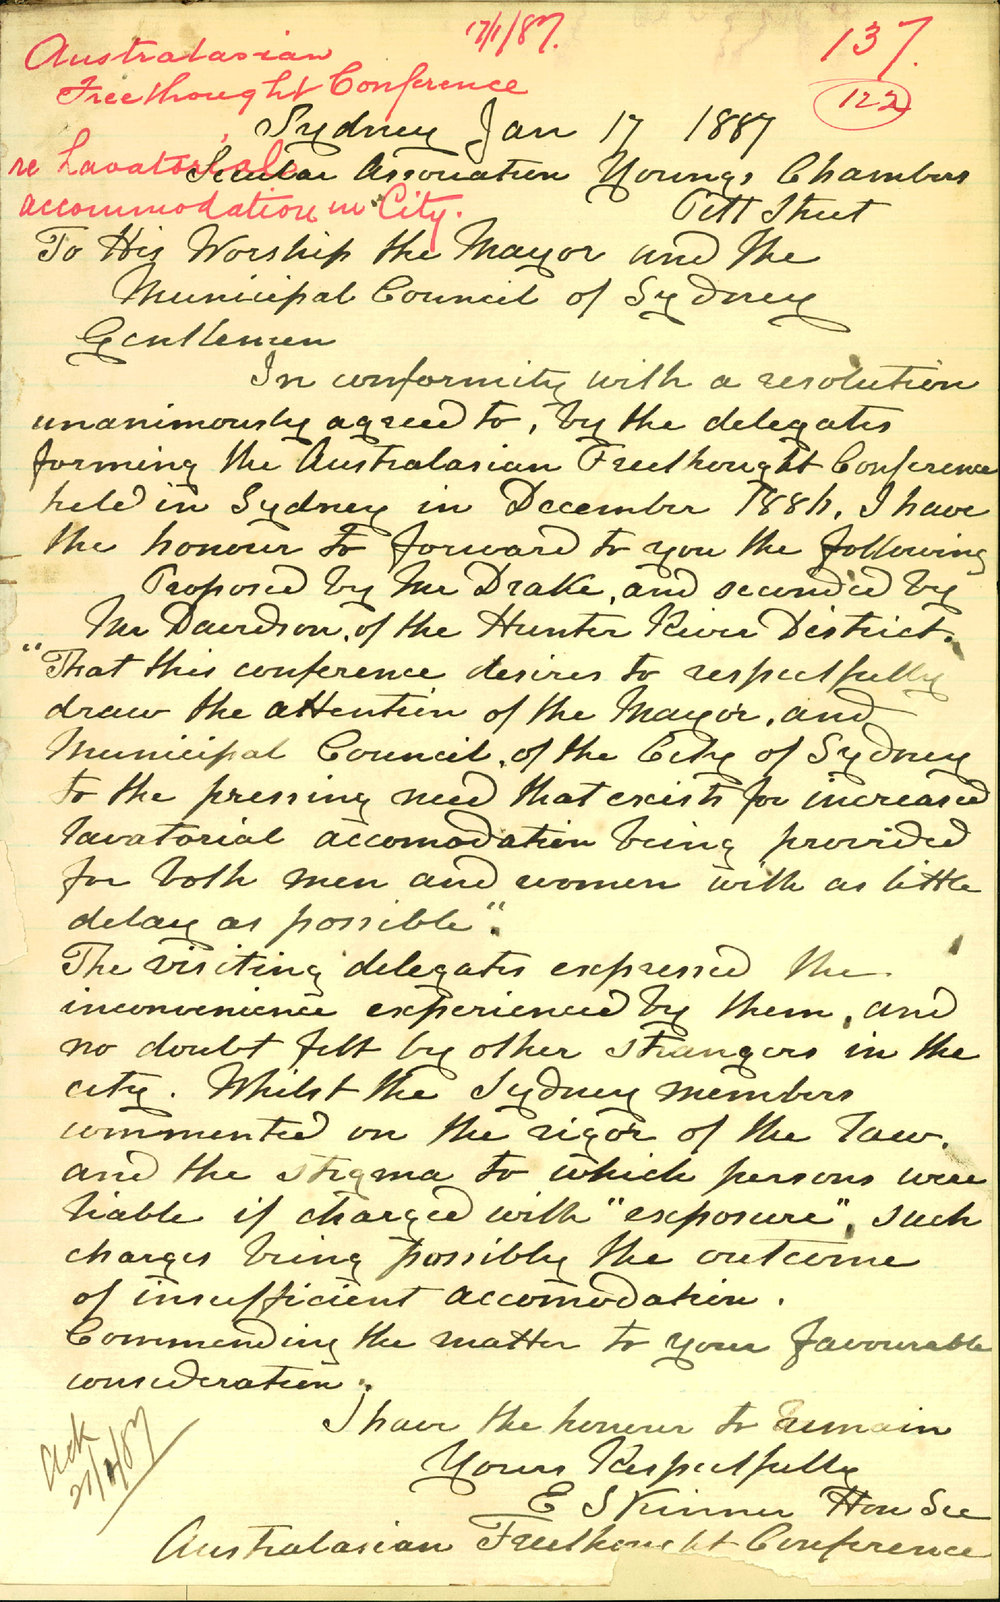 17/1/87.
137.
122
Australasian
Freethought Conference
re Lavatorial
accommodation in City.
Sydney Jan 17 1887
Secular Association Youngs Chambers
Pitt Street
To His Worship the Mayor and the
Municipal Council of Sydney
Gentlemen
In conformity with a resolution
unanimously agreed to, by the delegates
forming the Australasian Freethought Conference
held in Sydney in December 1886, I have
the honour to forward to you the following
Proposed by Mr Drake, and seconded by
Mr Davidson, of the Hunter River District.
"That this conference desires to respectfully
draw the attention of the Mayor, and
Municipal Council, of the City of Sydney
to the pressing need that exists for increased
lavatorial accomodation being provided
for both men and women with as little
delay as possible".
The visiting delegates expressed the
inconvenience experienced by them, and
no doubt felt by other strangers in the
city. Whilst the Sydney members
commented on the rigor of the law,
and the stigma to which persons were
liable if charged with "exposure", such
charges being possibly the outcome
of insufficient accomodation.
Commending the matter to your favourable
consideration.
I have the honour to remain
Yours Respectfully
E Skinner Hon Sec
Australasian Freethought Conference
Ack